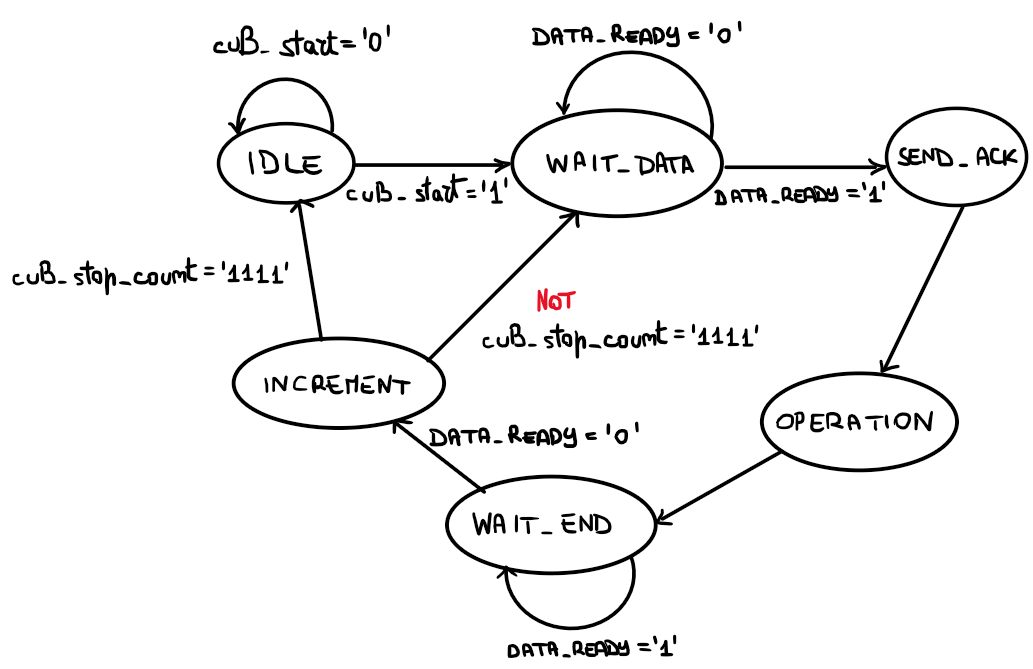 cuB_start='0'
DATA_READY='0'
IDLE
WAIT_DATA
SEND_ACK
cuB_start='1'
DATA_READY='1'
cuB_stop_count='1111'
NOT
cuB_stop_count='1111'
INCREMENT
OPERATION
DATA_READY='0'
WAIT_END
DATA_READY='1'